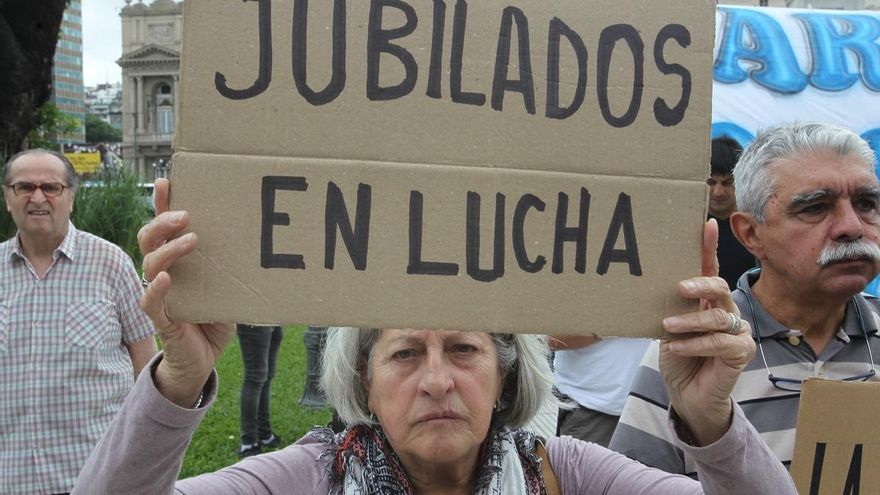 JUBILADOS
EN LUCHA
AR
LA